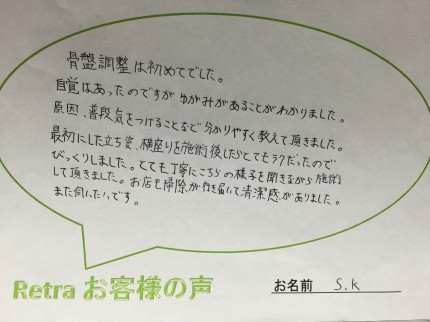 骨盤調整は初めてでした。
自覚はあったのですが ゆがみがあることがわかりました。
原因、普段気をつけることなど分かりやすく教えて頂きました。
最初にした立ち姿、横座りを施術後したらとてもラクだったので
びっくりしました。とても丁寧にこちらの様子を聞きながら施術
して頂きました。お店も掃除が行き届いて清潔感がありました。
また伺いたいです。
Retra お客様の声
お名前 S.K